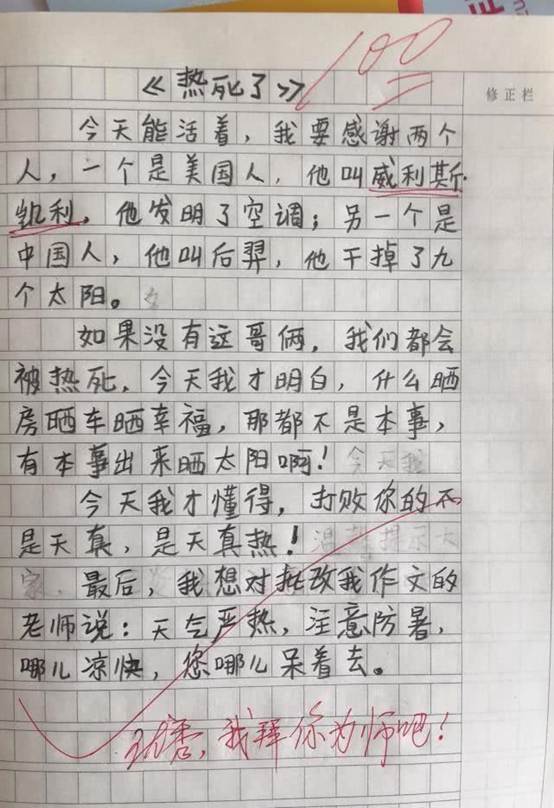 证
100
修正栏
《热死了》
今天能活着,我要感谢两个
人,一个是美国人,他叫威利斯·
凯利,他发明了空调;另一个是
中国人,他叫后羿,他干掉了九
个太阳。
如果没有这哥俩,我们都会
被热死,今天我才明白,什么晒
房晒车晒幸福,那都不是本事,
有本事出来晒太阳啊!
今天我才懂得,打败你的不
是天真,是天真热!
最后,我想对批改我作文的
老师说:天气严热,注意防暑,
哪儿凉快,您哪儿呆着去。
优秀,我拜你为师吧!